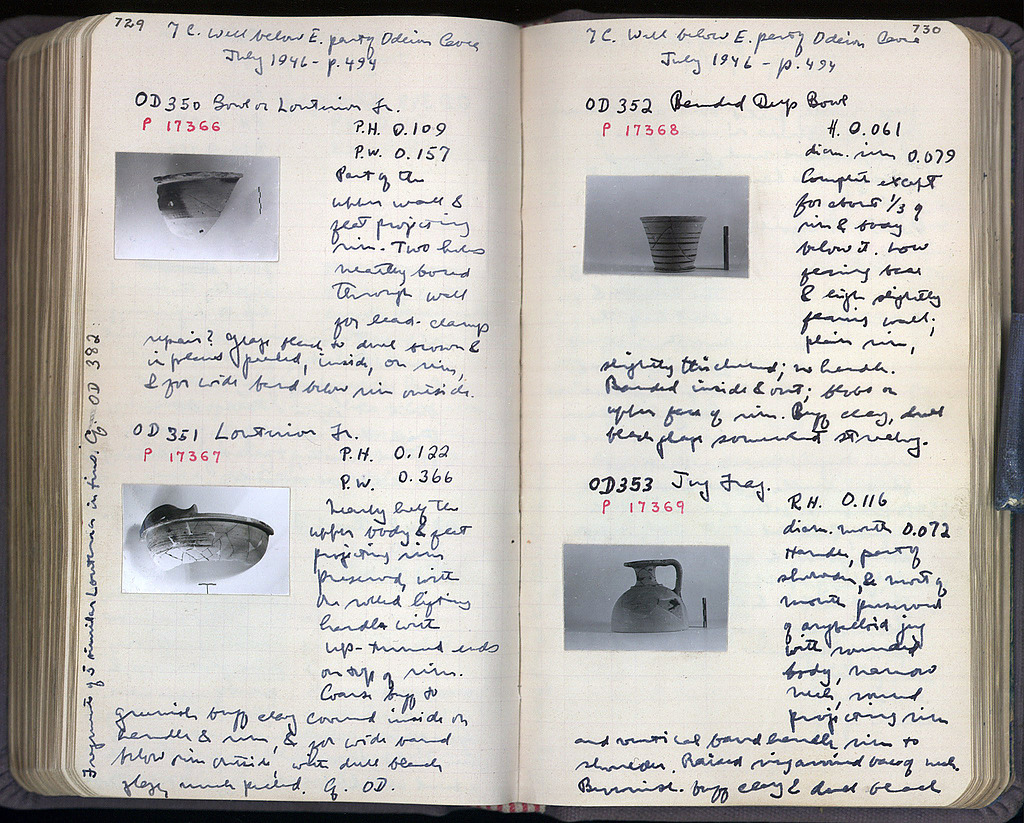 729
7 C. Well below E. part of Odeion Cavea
July 1946 - p. 494
OD 350 Bowl or Louterion Fr.
P 17366
P.H. 0.109
P.W. 0.157
Part of the
upper wall &
flat projecting
rim. Two holes
neatly bored
through wall
for lead-clamps
repair? Glaze black to dull brown &
in places peeled, inside, on rim,
& for wide band below rim outside.
OD 351 Louterion Fr.
P 17367
P.H. 0.122
P.W. 0.366
Nearly half the
upper body & flat
projecting rim
preserved, with
one rolled lifting
handle with
up-turned ends
on top of rim.
Coarse buff to
greenish buff clay covered inside on
handle & rim, & for wide band
below rim outside, with dull black
glaze, much peeled. Cf. OD.
Fragments of 5 similar Louteria in fine. Cf. OD 382:
730
7 C. Well below E. part of Odeion Cavea
July 1946 - p. 494
OD 352 Banded Deep Bowl
P 17368
H. 0.061
diam. rim 0.079
Complete except
for about 1/3 of
rim & body
below it. Low
flaring base
& high slightly
flaring wall;
plain rim,
slightly thickened; no handle.
Banded inside & out; blobs on
upper face of rim. Buff clay, dull
black glaze somewhat streaky.
OD 353 Jug Frag.
P 17369
P.H. 0.116
diam. mouth 0.072
Handle, part of
shoulder, & most of
mouth preserved
of aryballoid jug
with rounded
body, narrow
neck, round
projecting rim
and vertical band handle rim to
shoulder. Raised ring around base of neck.
Brownish buff clay & dull black